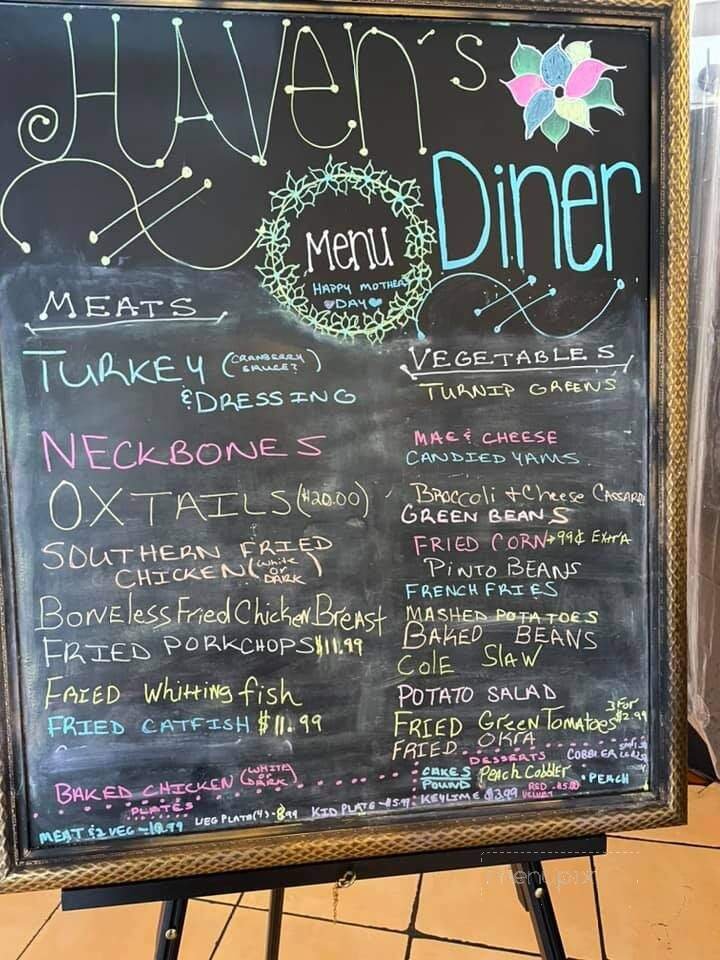 HAVEN's
Diner
Menu
HAPPY MOTHER
DAY
MEATS
TURKEY (CRANBERRY
SAUCE)
& DRESSING
NECKBONES
OXTAILS ($20.00)
SOUTHERN FRIED
CHICKEN (White
or
DARK)
Boneless Fried Chicken Breast
FRIED PORKCHOPS $11.99
FRIED Whitting fish
FRIED CATFISH $11.99
BAKED CHICKEN (WHITE
or
DARK)
PLATES
MEAT $2 VEG -
VEG PLATE (4) - 8.99
KID PLATE - 5.99
VEGETABLES
TURNIP GREENS
MAC & CHEESE
CANDIED YAMS
Broccoli + Cheese CASSAROL
GREEN BEANS
FRIED CORN → 99¢ EXTRA
PINTO BEANS
FRENCH FRIES
MASHED POTATOES
BAKED BEANS
COLE SLAW
POTATO SALAD
FRIED Green Tomatoes 3 For
$2.99
FRIED OKRA
DESSERTS
COBBLER
CAKES
Peach Cobbler
• PEACH
POUND
KEYLIME $3.99
RED
VELVET
Menupix